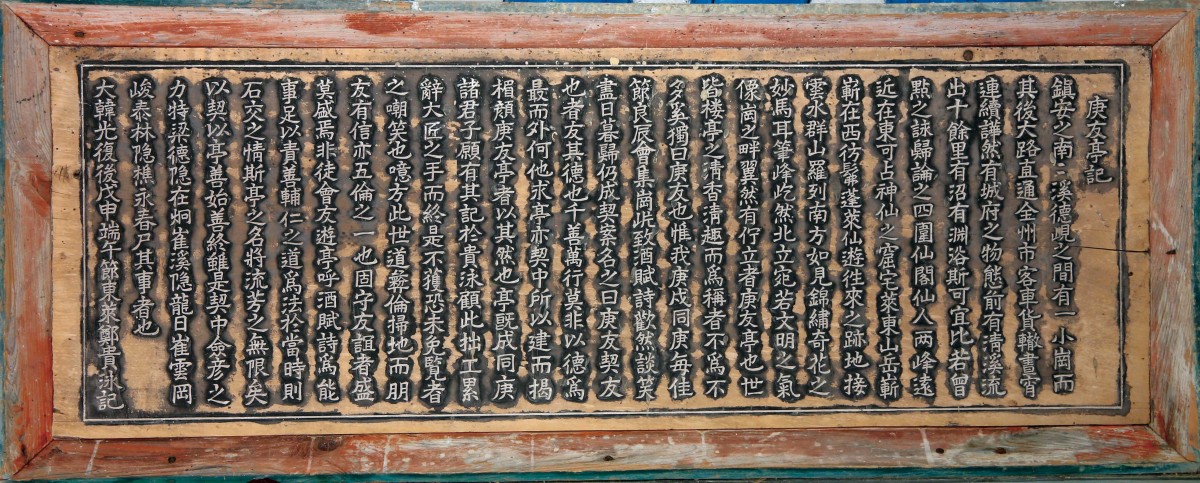 庚友亭記
鎭安之南二溪德峴之間有一小崗而
其後大路直通全州市客車貨轍晝宵
連續譁然有城府之物態前有淸溪流
出十餘里有沼有淵浴斯可宜比若曾
點之詠歸論之四圍仙閣仙人两峰遠
近在東可占神仙之窟宅萊東山岳嶄
嶄在西彷彿蓬萊仙遊徃來之跡地接
雲水群山羅列南方如見錦繡奇花之
妙馬耳筆峰屹然北立宛若文明之氣
像崗之畔翼然有佇立者庚友亭也世
皆楼亭之淸香淸趣而爲稱者不爲不
多奚獨曰庚友也惟我庚戌同庚每佳
節良辰會集崗此致酒賦詩歡然談笑
盡日暮歸仍成契案名之曰庚友契友
也者友其德也千善萬行莫非以德爲
最而外何他求亭亦契中所以建而揭
楣顔庚友亭者以其然也亭旣成同庚
諸君子願有其記於貴泳顧此拙工累
辭大匠之手而終是不獲恐未免覧者
之嘲笑也噫方此世道彜倫掃地而朋
友有信亦五倫之一也固字友誼者盛
莫盛焉非徒會友遊亭呼酒賦詩爲能
事足以責善輔仁之道爲法於當時則
石交之情斯亭之名將流芳之無限矣
以契以亭善始善終維是契中僉彦之
力特梁德隐在炯崔溪隐龍日崔雲岡
峻泰林隐樵永春尸其事者也
大韓光復後戊申端午節東萊鄭貴泳記